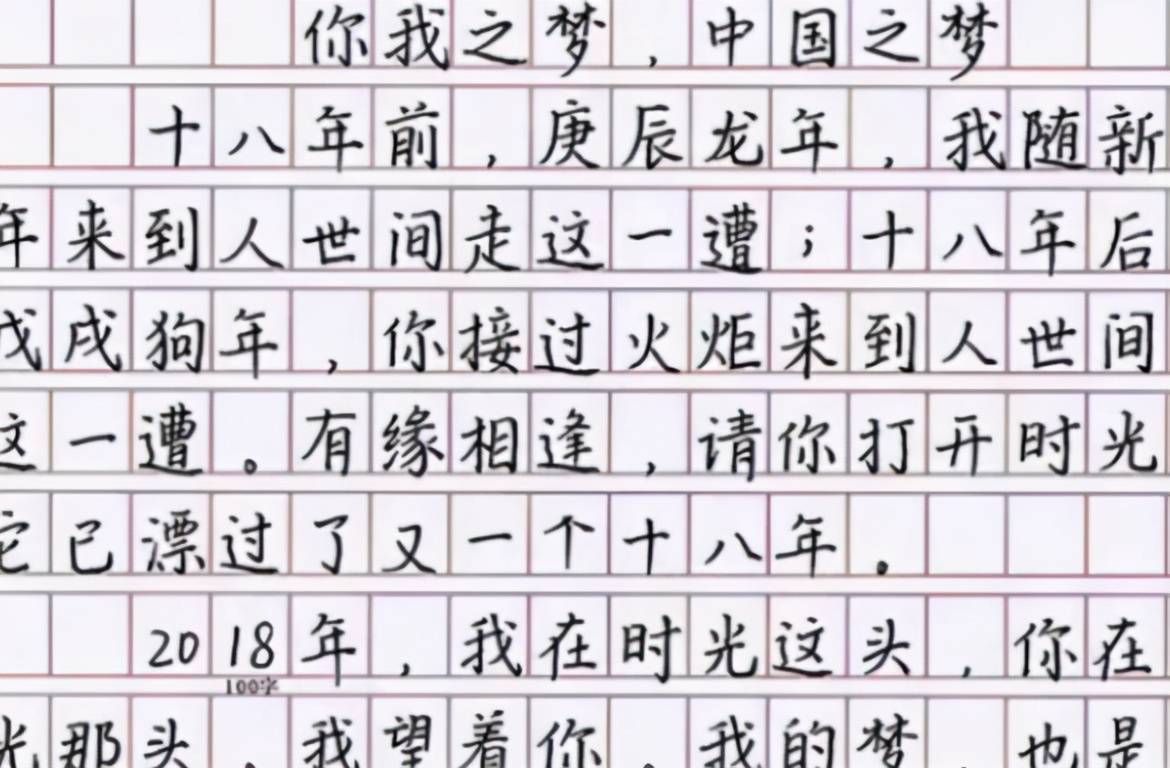 你我之梦，中国之梦
十八年前，庚辰龙年，我随新
年来到人世间走这一遭；十八年后
戊戌狗年，你接过火炬来到人世间
这一遭。有缘相逢，请你打开时光
它已漂过了又一个十八年。
2018年，我在时光这头，你在
100字
光那头，我望着你，我的梦，也是